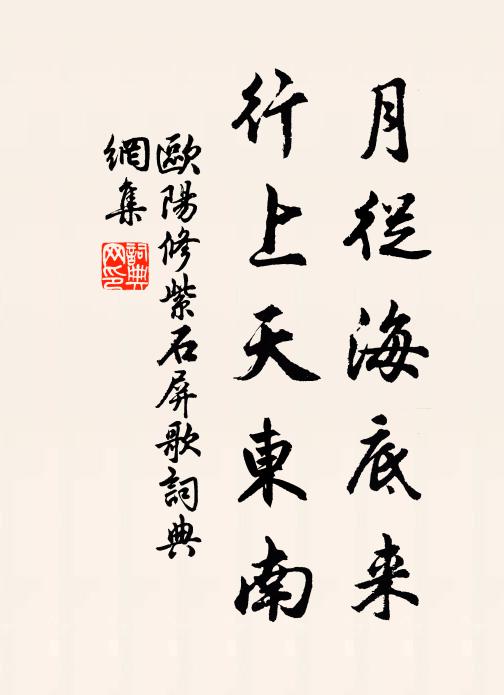 月從海底来
行上天東南
歐陽修紫石屏歌詞典
網集
詞典
网印